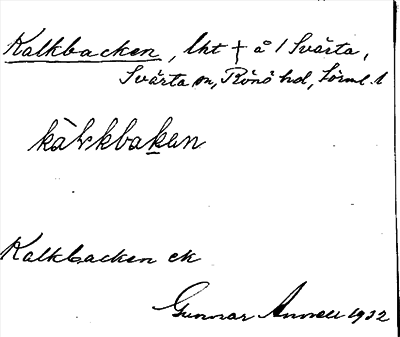 Kalkbacken, lht † å 1 Svärta,
Svärta sn, Rönö hd, Sörml. l
kàlkbaken
Kalkbacken ek
Gunnar 1932